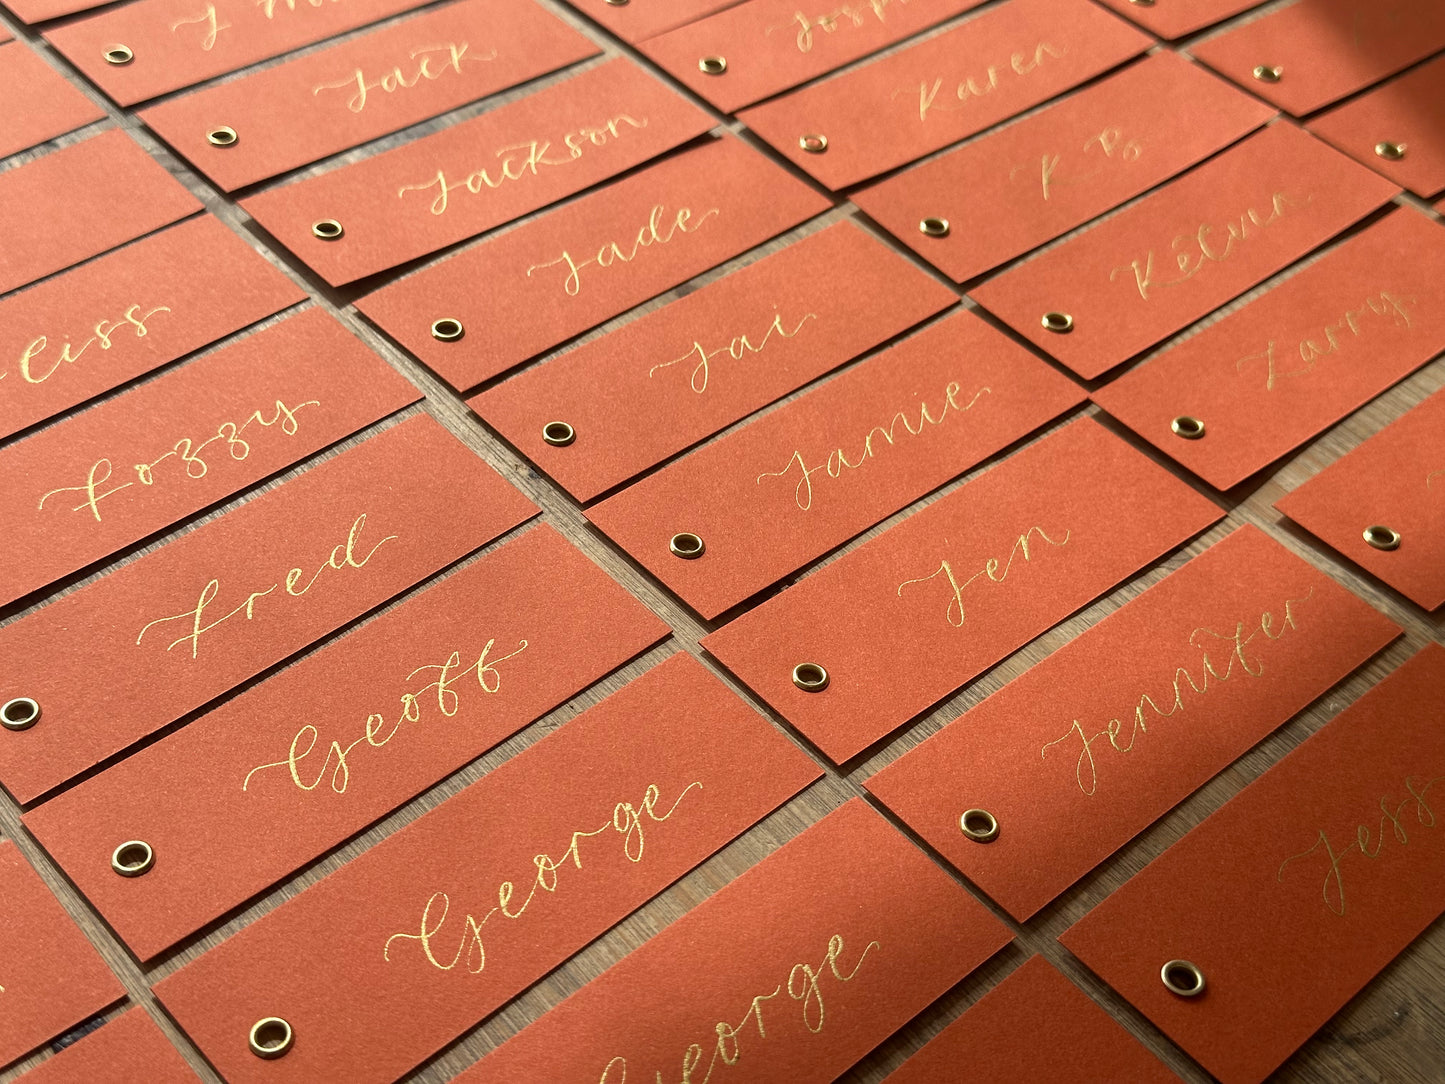 Jack
Jackson
Jade
Jai
Jamie
Jen
Jennifer
Jess
Karen
Kelvin
Larry
Fozzy
Fred
Geoff
George
George